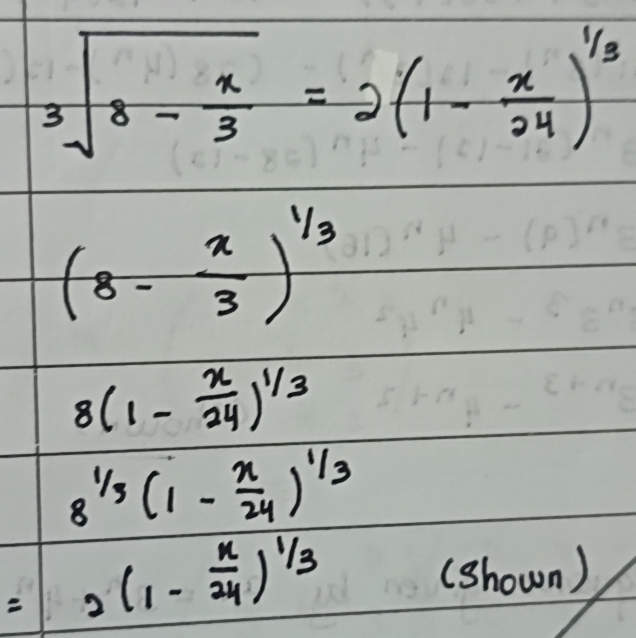 ∛(8 - x/3) = 2(1 - x/24)^1/3
(8 - x/3)^1/3
8(1 - x/24)^1/3
8^1/3 (1 - x/24)^1/3
= 2(1 - x/24)^1/3 (Shown)